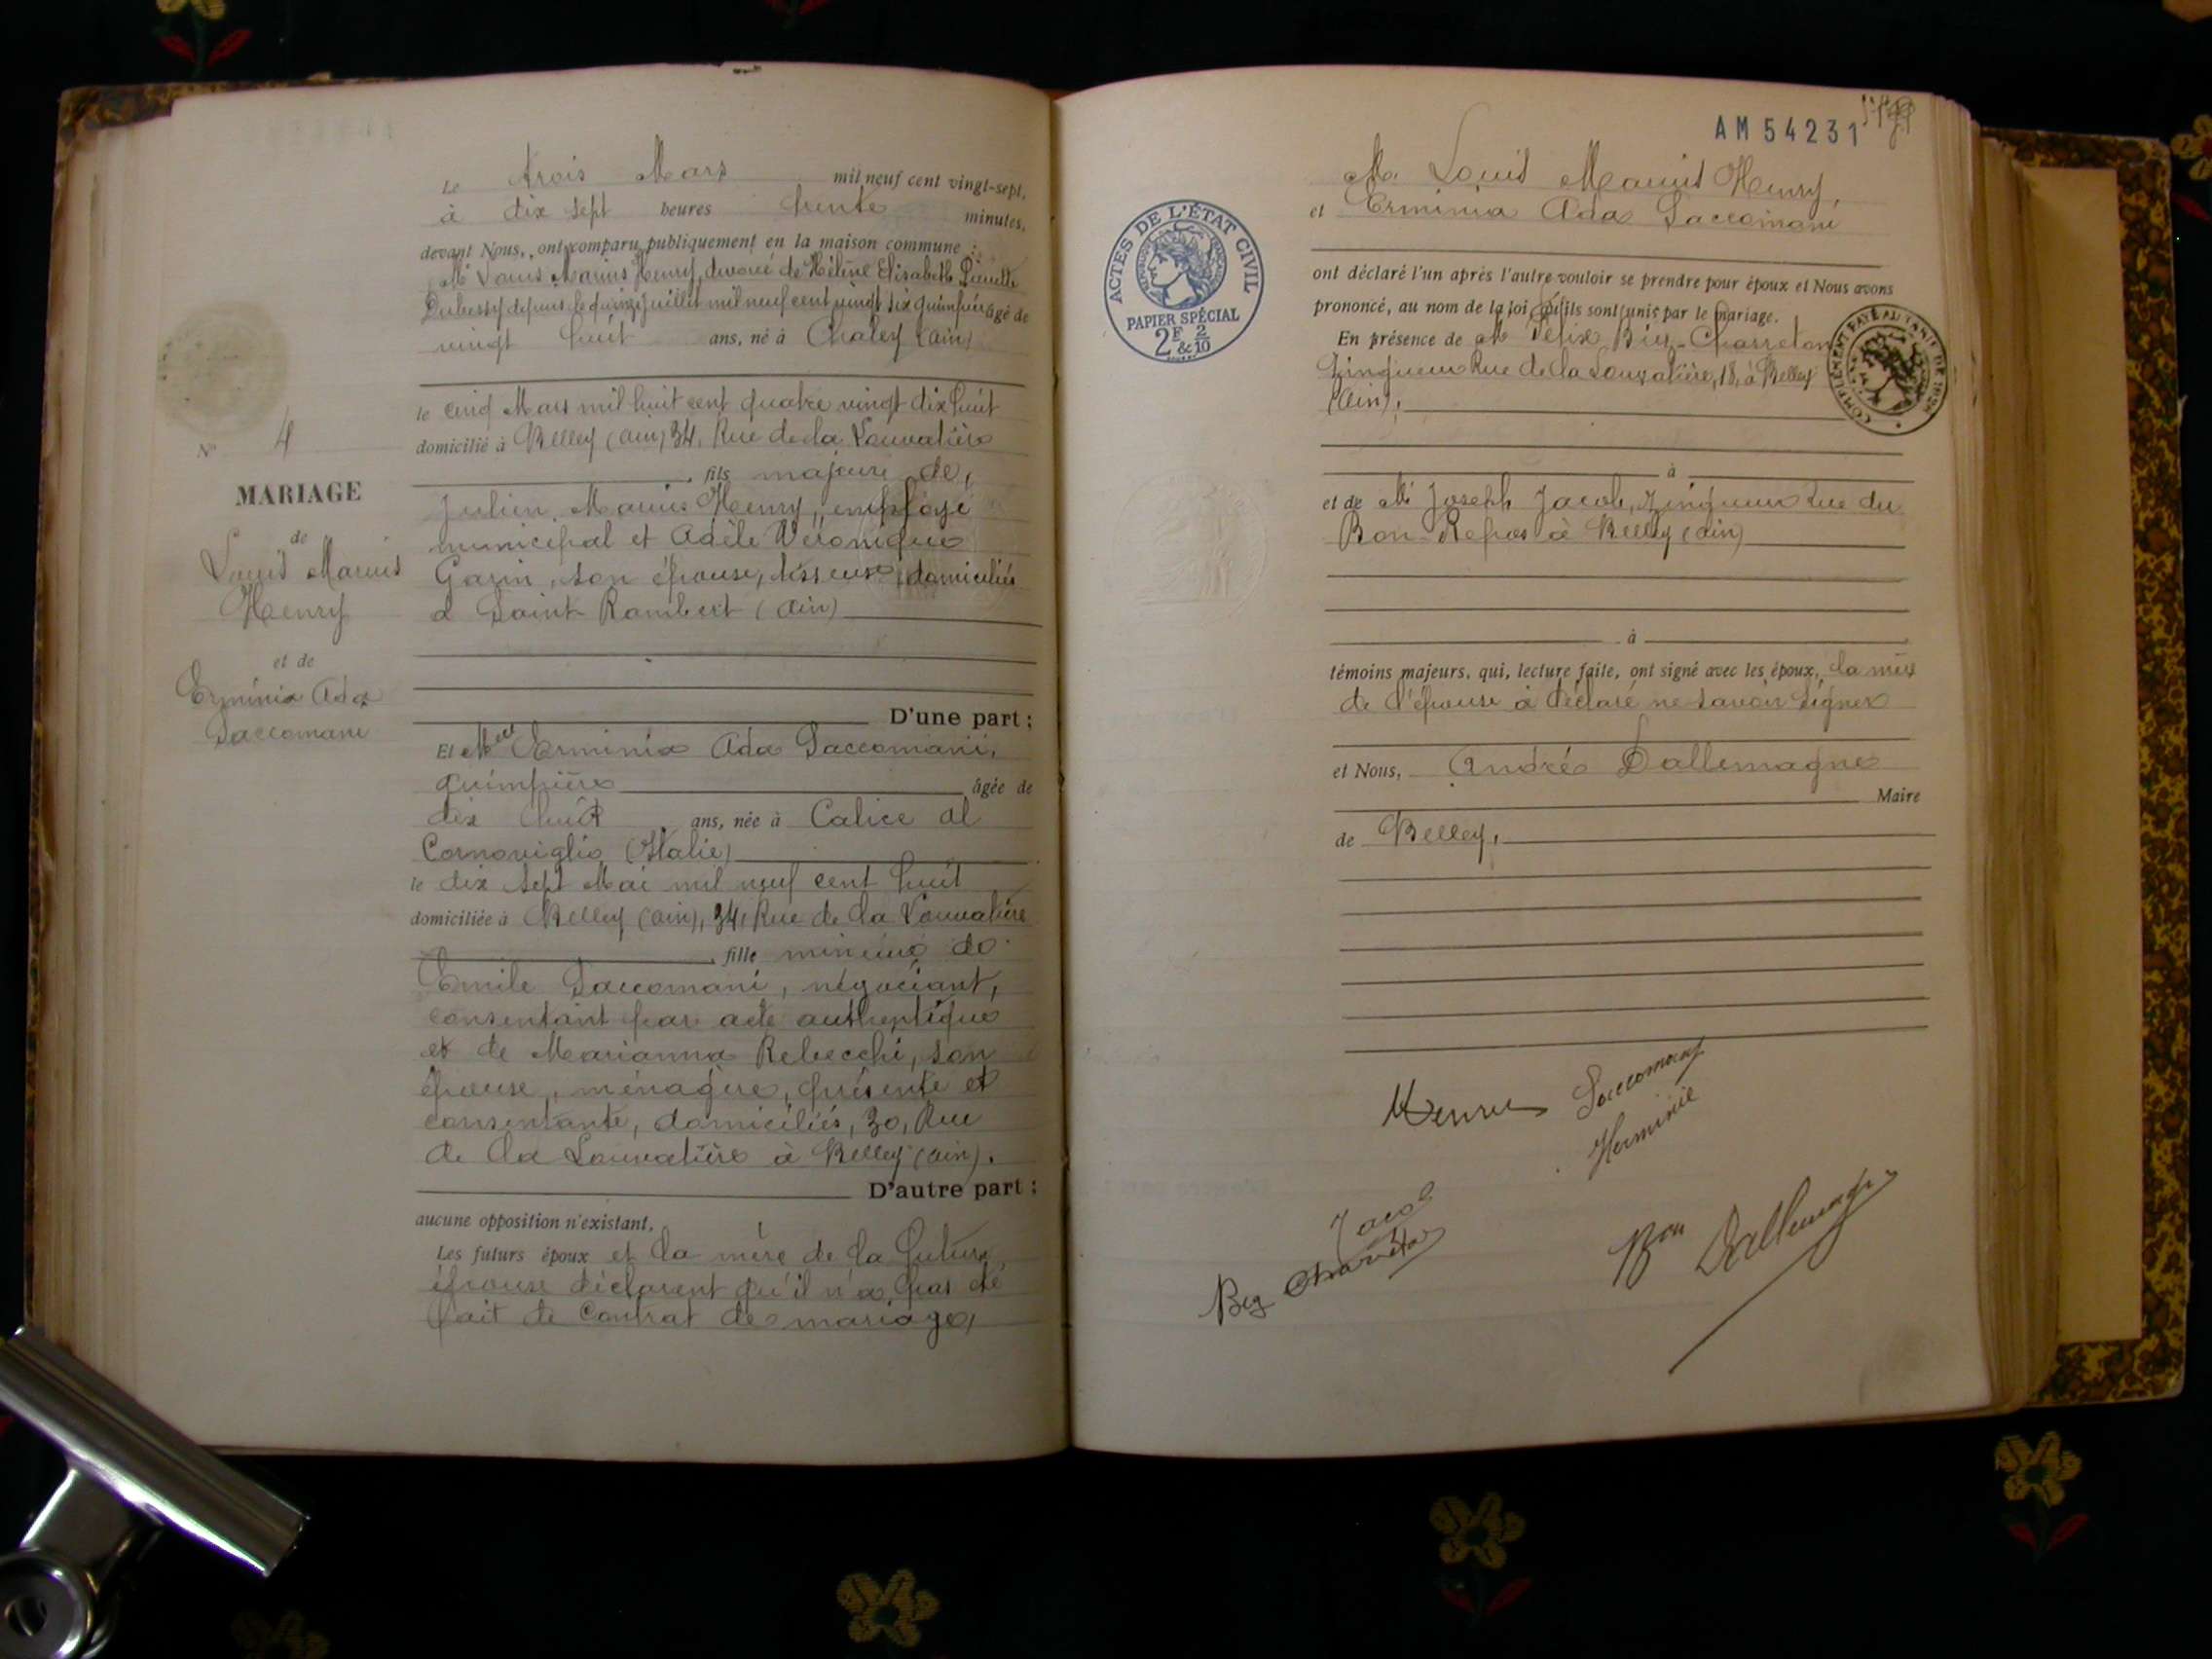 Le trois Mars mil neuf cent vingt-sept,
à dix sept heures trente minutes,
devant Nous, ont comparu publiquement en la maison commune :
Mr Louis Marius Henry, divorcé de Hélène Elisabeth Pierrette
Dubessy depuis le quinze juillet mil neuf cent vingt six guimpier âgé de
vingt huit ans, né à Chaley (Ain)
le cinq Mars mil huit cent quatre vingt dix huit
domicilié à Belley (Ain) 34, Rue de la Louvatière
fils majeur de,
Julien Marius Henry, employé
municipal et Adèle Véronique
Gazin, son épouse, tisseuse, domiciliés
à Saint Rambert (Ain)
D'une part ;
Et Melle Erminia Ada Saccomani,
guimpière âgée de
dix huit ans, née à Calice al
Cornoviglio (Italie)
le dix sept Mai mil neuf cent huit
domiciliée à Belley (Ain), 34, Rue de la Louvatière
fille mineure de
Emile Saccomani, négociant,
consentant par acte authentique
et de Marianna Rebecchi, son
épouse, ménagère, présente et
consentante, domiciliés, 30, Rue
de la Louvatière à Belley (Ain).
D'autre part ;
aucune opposition n'existant.
Les futurs époux et la mère de la future
épouse déclarent qu'il n'a pas été
fait de contrat de mariage,
No 4
MARIAGE
de
Louis Marius
Henry
et de
Erminia Ada
Saccomani
AM 54231
Mr Louis Marius Henry,
et Erminia Ada Saccomani
ont déclaré l'un après l'autre vouloir se prendre pour époux et Nous avons
prononcé, au nom de la loi, qu'ils sont unis par le mariage.
En présence de Mr Félix Bey-Charreton
Zingueur Rue de la Louvatière, 18, à Belley
(Ain),
à
et de Mr Joseph Jacob, Zingueur Rue du
Bon-Repos à Belley (Ain)
à
témoins majeurs, qui, lecture faite, ont signé avec les époux, la mère
de l'épouse à déclaré ne savoir signer
et Nous, André Dallemagne
Maire
de Belley,
Henry
Saccomany
Herminie
Jacob
Bey Charreton
Bon Dallemagne
ACTES DE L'ÉTAT CIVIL
PAPIER SPÉCIAL
2F & 2/10
COMPLÉMENT PAYÉ AU TARIF DE